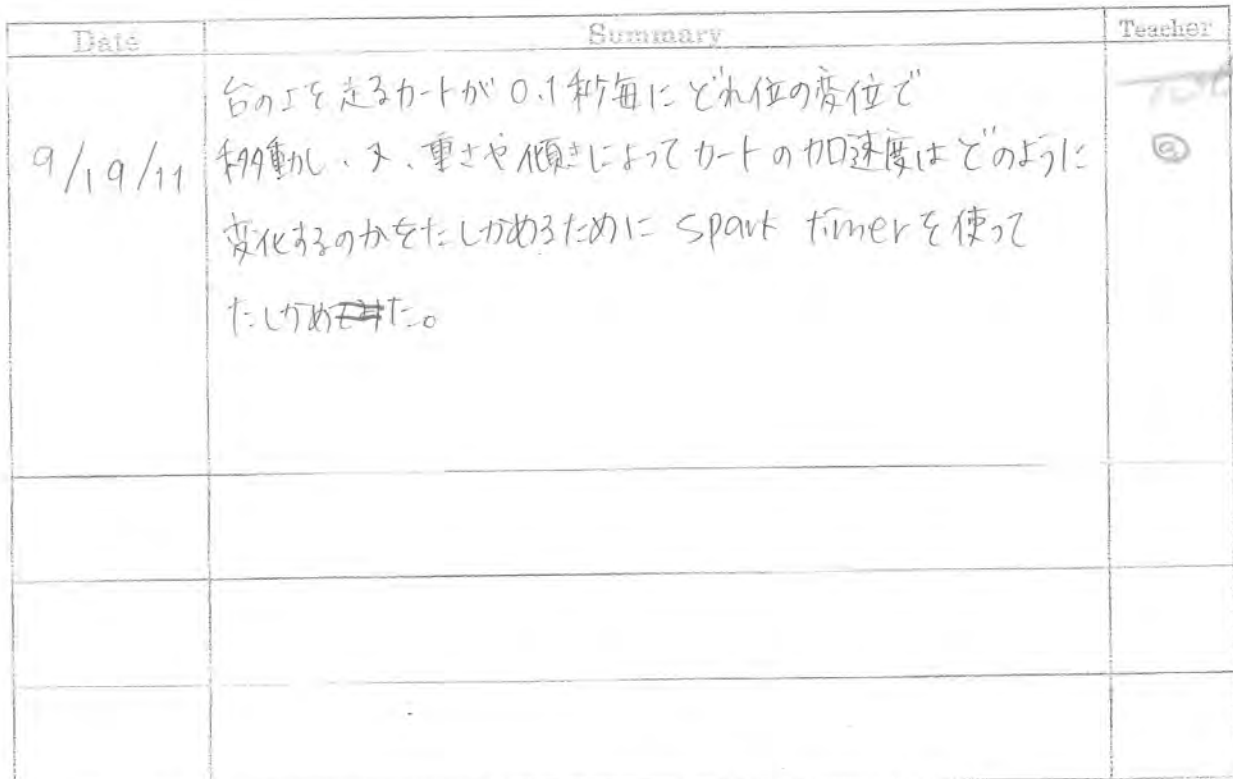 Date Summary Teacher
台の上を走るカートが 0.1秒毎に どれ位の変位で
9/19/11 移動し、又、重さや傾きによってカートの加速度はどのように
変化するのかをたしかめるために spark timerを使って
たしかめた。